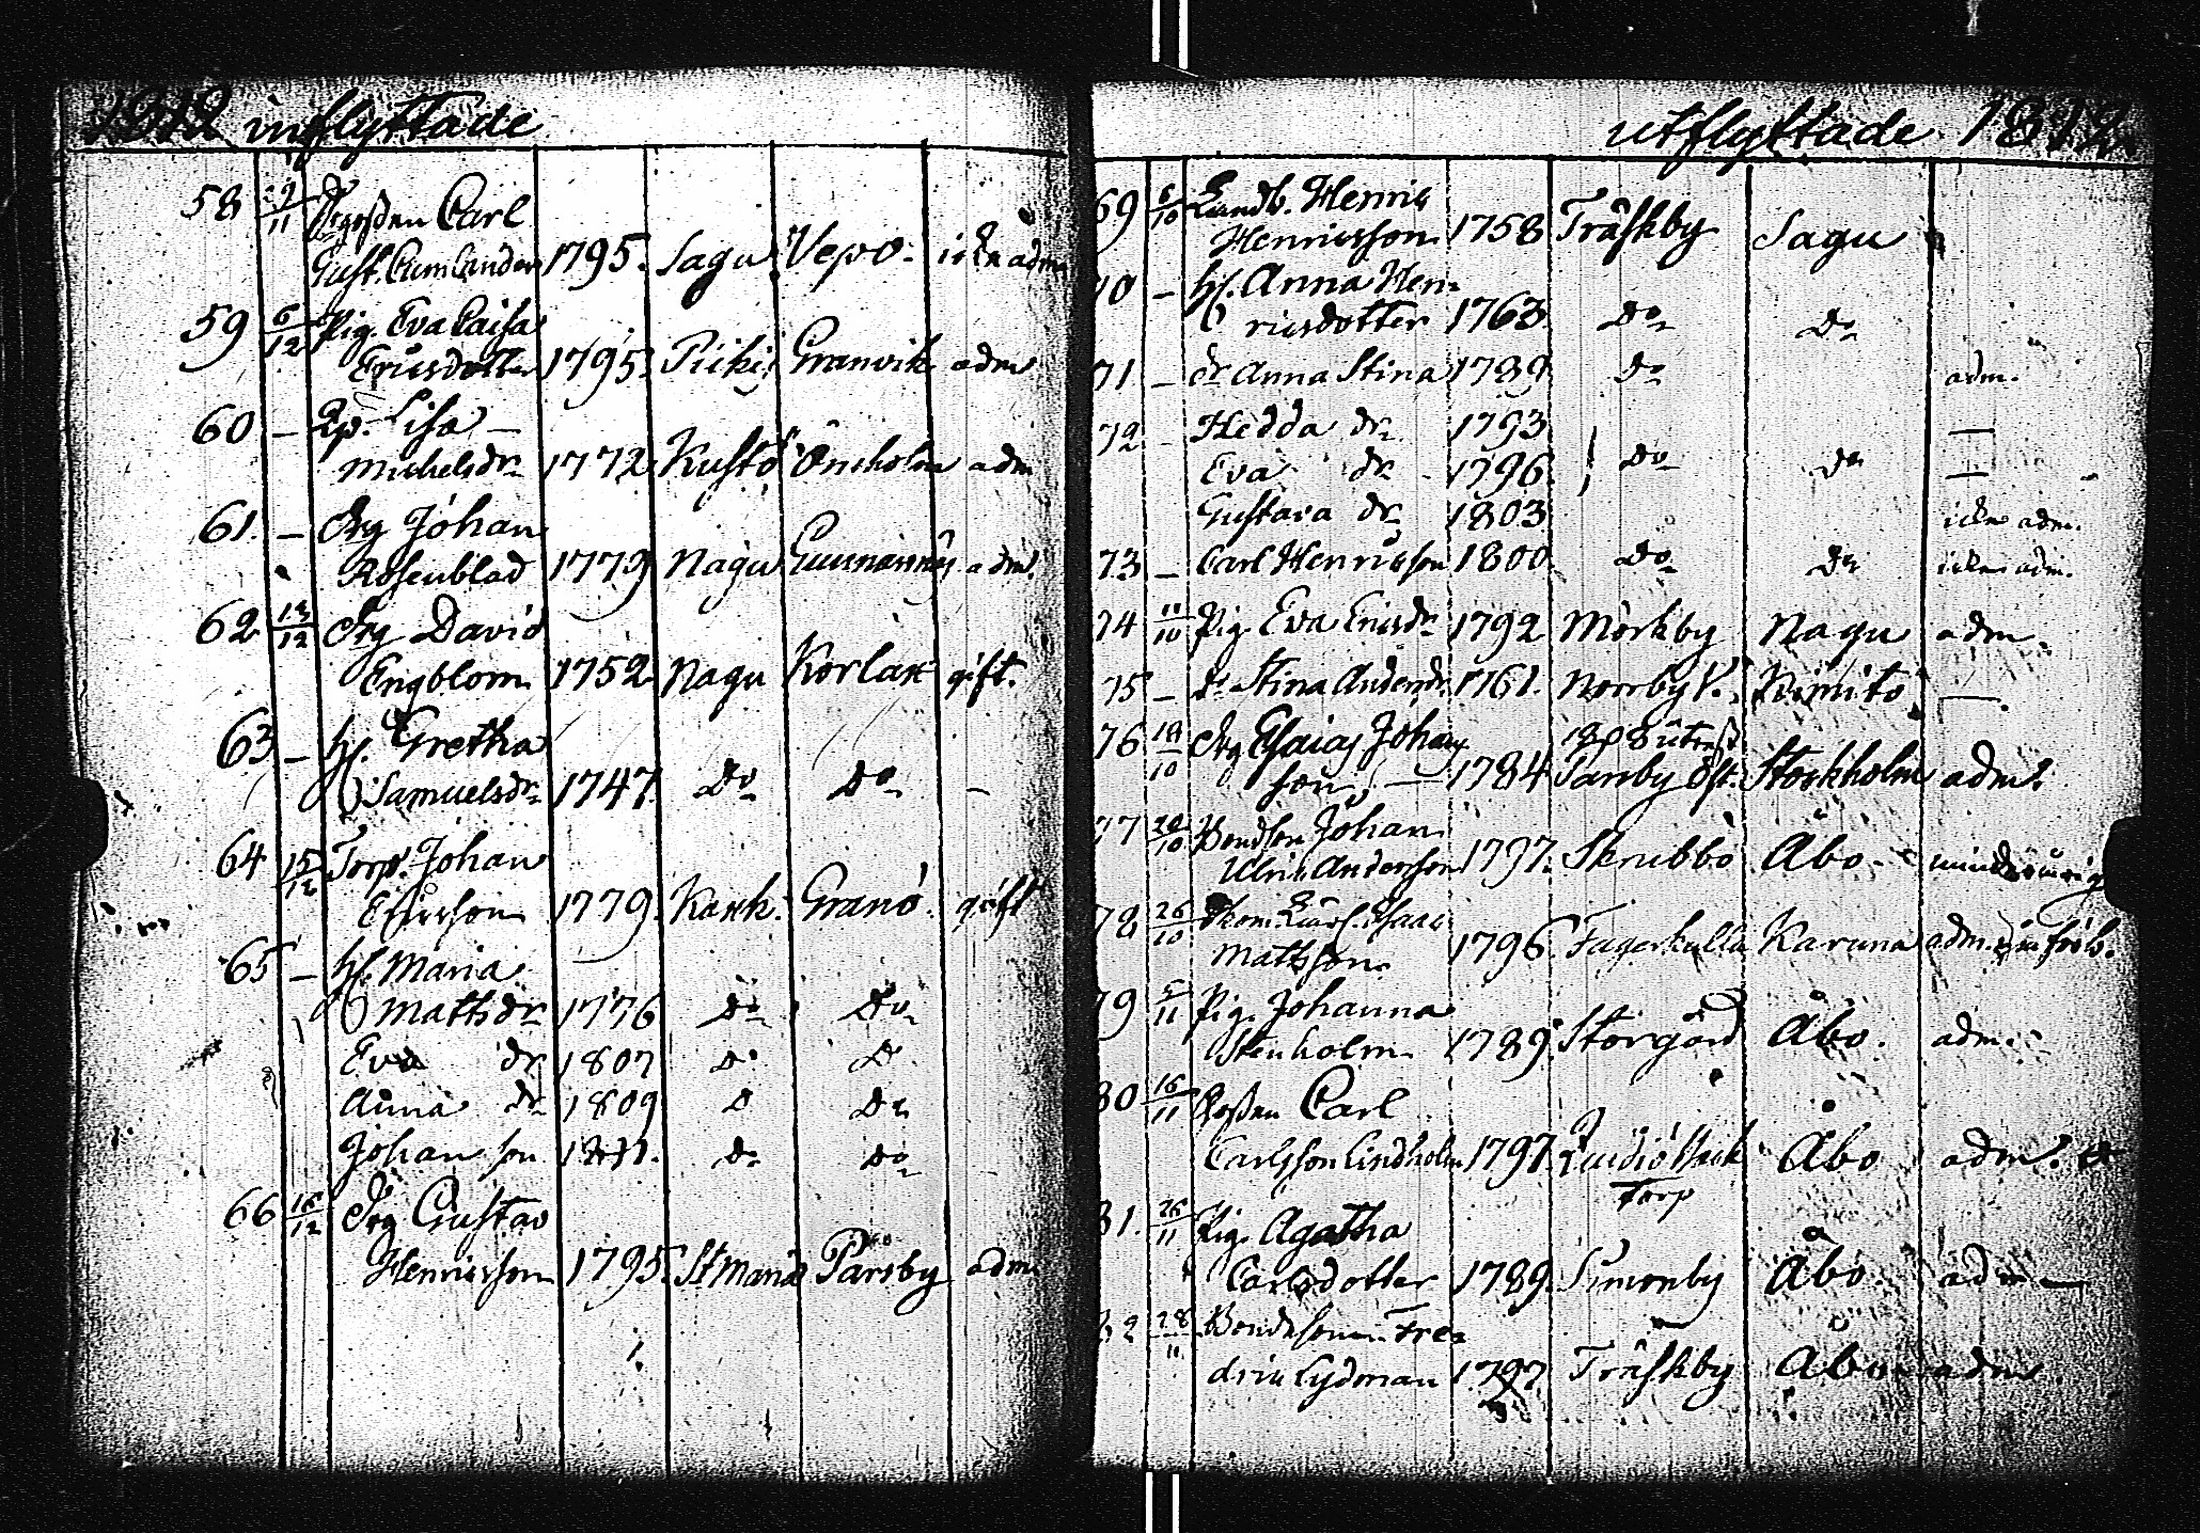 1812 inflyttade
58 9/11 Carl
Gust. 1795. Sagu Vepo. icke adm
59 6/12 Pig. Eva Caisa
Ericsdotter 1795. Piikis Granvik adm
60 — Lisa —
Michelsdr 1772 Kustö adm
61. — Drg Johan
Rosenblad 1779 Nagu adm.
62 13/12 Drg David
Engblom 1752 Nagu Korlax gift.
63 — h. Gretha
Samuelsdr 1747 Do Do —
64 15/12 Torp. Johan
Ericsson 1779. Kaxk. Granö. gift
65 — h. Maria
Mattsdr 1776 Do Do
Eva dr 1807 D D
Anna dr 1809 D Do
Johan son 1811. do do
66 16/12 Drg Gustav
Henricsson 1795. St Marie Parsby adm
utflyttade 1812
69 6/10 Landb. Henric
Henricsson 1758 Träskby Sagu
70 — h. Anna Hen
ricsdotter 1763 Do Do
71 — dr Anna Stina 1789 Do adm.
72 — Hedda dr 1793 —
Eva dr 1796 Do do —
Gustava dr 1803 icke adm.
73 — Carl Henricsson 1800 Do Do icke adm.
74 11/10 Pig. Eva Ericsdr 1792 Mörkby Nagu adm.
75 — do Stina Andersdr 1761. Norrby V. Kimito —.
76 Drg Esaias Johans
son — 1784 Parsby Stockholm adm.
77 20/10 Bondson Johan
Ulric Andersson 1797. Skrubbö Åbo minderårig
78 26/10 Isaac
Mattsson 1796. Fagerkulla Karuna adm.
79 5/11 Pig. Johanna
Stenholm 1789 Storgård Åbo. adm.
80 16/11 Gossen Carl
Carlsson Lindholm 1797 Åbo adm.
Torp
81. 26/11 Pig. Agatha
Carlsdotter 1789. Simonby Åbo adm —
82 28/11 Bondesonen Fre
dric Lydman 1797 Träskby Åbo adm.